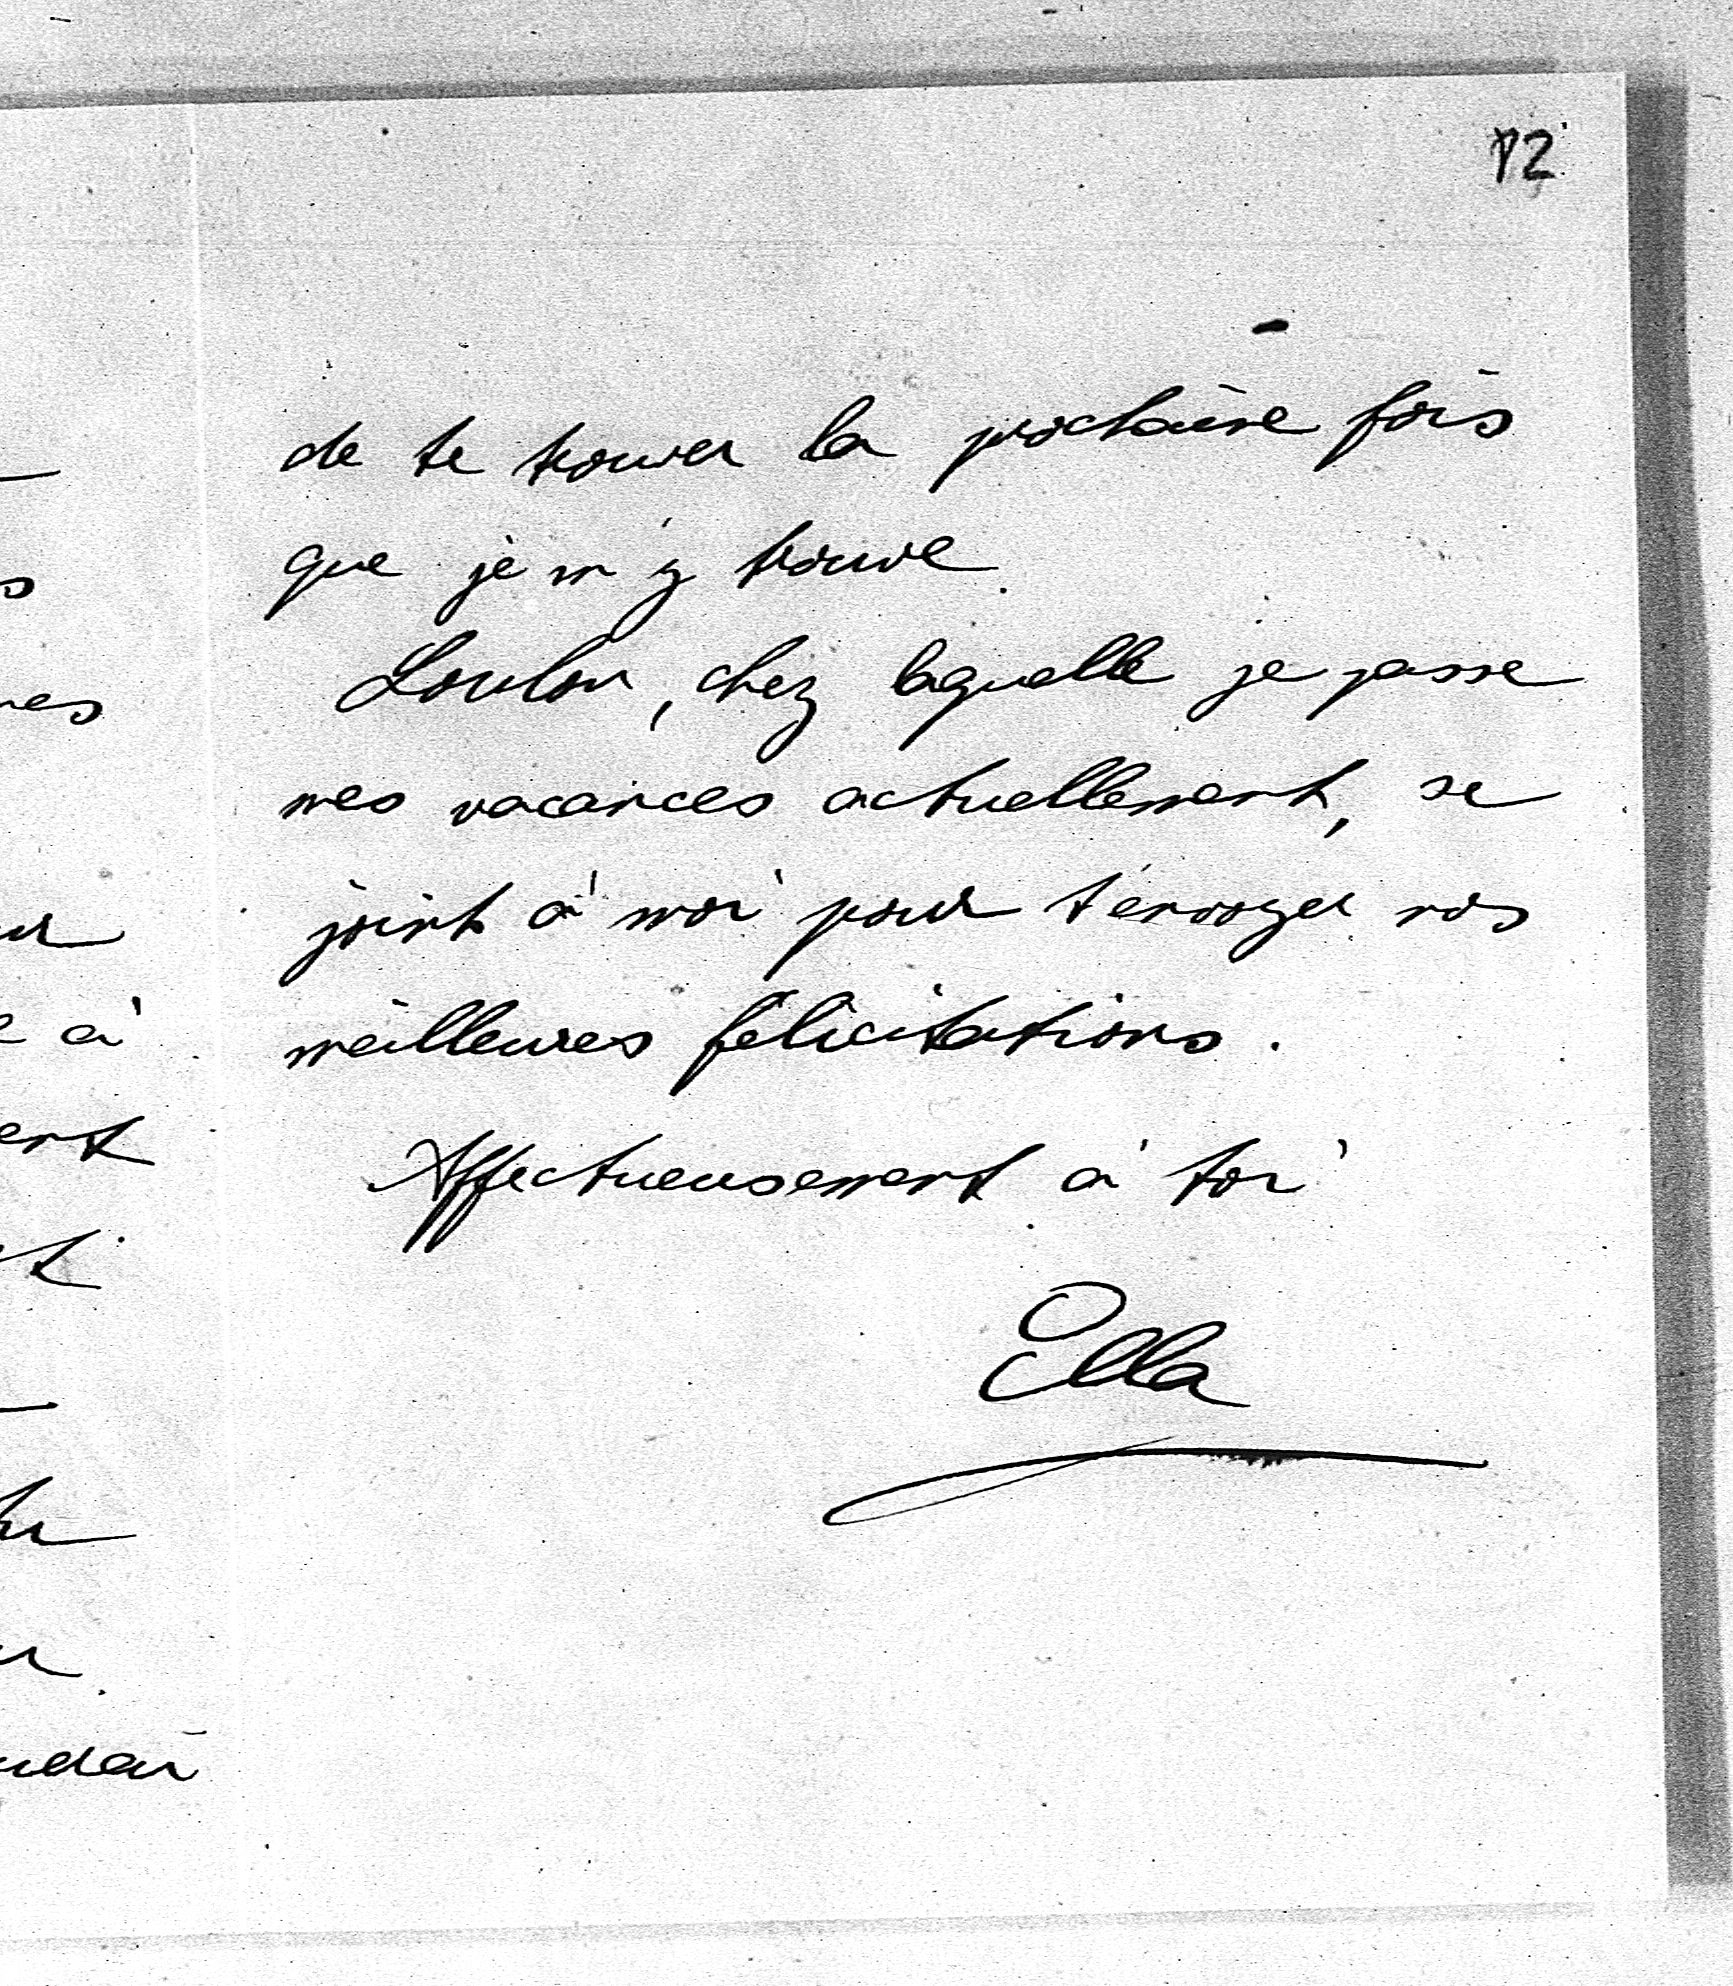 12
de te trouver la prochaine fois
que je m'y trouve.
Loulou, chez laquelle je passe
mes vacances actuellement, se
joint à moi pour t'envoyer nos
meilleures félicitations.
Affectueusement à toi
Ella